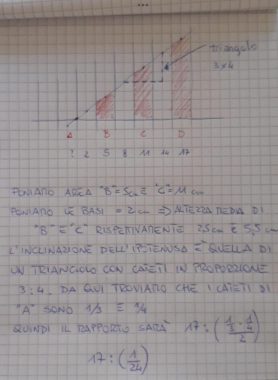 triangolo
3x4
A B C D
? 2 5 8 11 14 17
PONIAMO AREA "B"=5cm E "C"=11 cm
PONIAMO LE BASI = 2cm => ALTEZZA MEDIA DI
"B" E "C" RISPETIVAMENTE 2,5cm E 5,5 cm
L'INCLINAZIONE DELL'IPOTENUSA E' QUELLA DI
UN TRIANGOLO CON CATETI IN PROPORZIONE
3:4. DA QUI TROVIAMO CHE I CATETI DI
"A" SONO 1/3 E 1/4
QUINDI IL RAPPORTO SARÀ 17:(1/3·1/4/2)
17:(1/24)